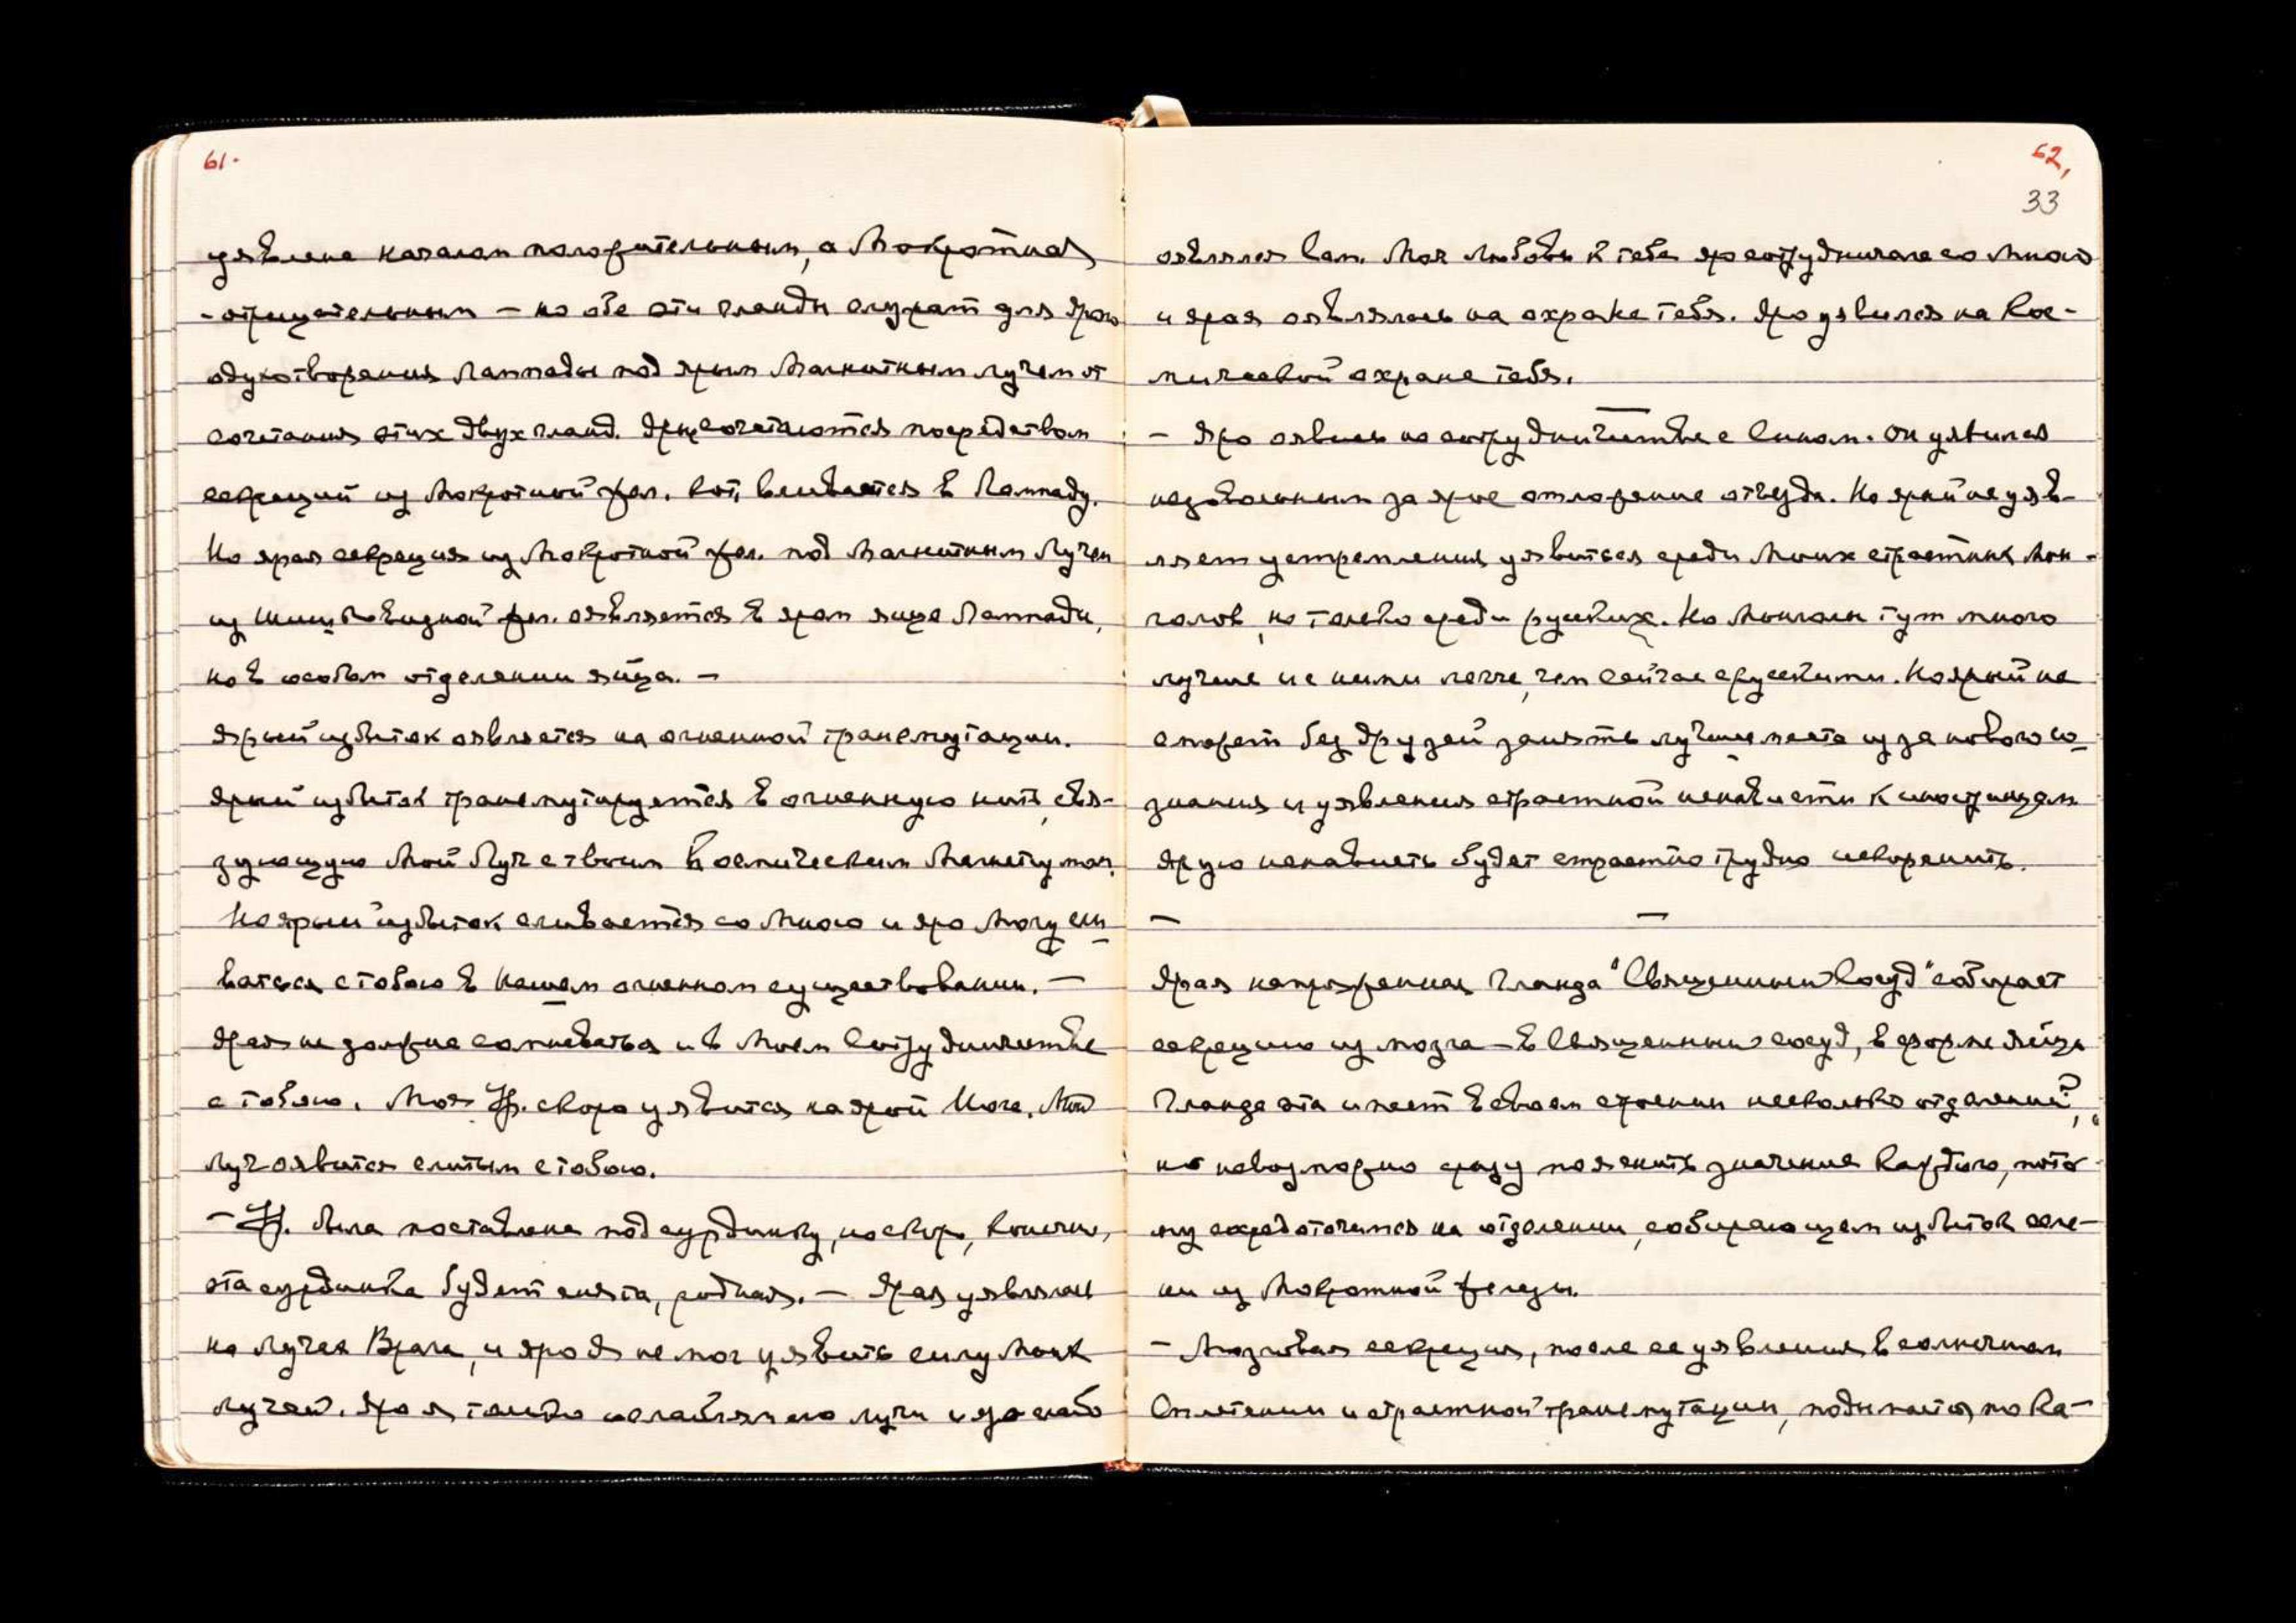 61.
уявлена каналом положительным, а Мокротная
- отрицательным — но обе эти гланды служат для ярого
одухотворения Лампады под ярым Магнитным лучем от
сочетания этих двух гланд. Ярые сочетаются посредством
секреций из Мокротной жел. кот. вливается в Лампаду.
Но ярая секреция из Мокротной жел. под Магнитным Лучем
из Шишковидной жел. оявляется в яром яйце Лампады,
но в особом отделении яйца. —
Ярый избыток оявляется на огненной трансмутации.
Ярый избыток трансмутируется в огненную нить, свя-
зующую Мой Луч с твоим Космическим Магнитом.
Но ярый избыток сливается со Мною и яро Могу сли
ваться с тобою в нашем огненном существовании. —
Ярая не должна сомневаться и в Моем Сотрудничестве
с тобою. Моя Ур. скоро уявится на ярой Йоге. Мой
Луч оявится слитым с тобою.
— Ур. была поставлена под сурдинку, но скоро, конечно,
эта сурдинка будет снята, родная. — Ярая уявлялась
на Лучах Врага, и яро Я не мог уявить силу Моих
лучей. Яро я только ослаблял его лучи и яро слабо
62,
33
оявлялся Сам. Моя Любовь к тебе яро сотрудничала со Мною
и ярая оявлялась на охране тебя. Яро уявился на Кос-
мической охране тебя.
— Яро оявись на сотрудничестве с Сыном. Он уявился
недовольным за ярое отложение отъезда. Но ярый не уяв-
ляет устремления уявиться среди Моих страстных Мон-
голов, но только среди русских. Но Монголы тут много
лучше и с ними легче, чем сейчас с русскими. Но ярый не
сможет без друзей занять лучшие места из за нового со
знания и уявления страстной ненависти к иностранцам
Ярую ненависть будет страстно трудно искоренить.
— —
Ярая напряженная Гланда "Священный Сосуд" собирает
секрецию из мозга — в Священный сосуд, в форме Яйца
Гланда эта имеет в своем строении несколько отделений,
но невозможно сразу пояснить значение каждого, пото
му сосредоточимся на отделении, собирающем избыток секре-
ции из Мокротной железы.
— Мозговая секреция, после ее уявления в солнечном
Сплетении и страстной трансмутации, поднимается по Ка-